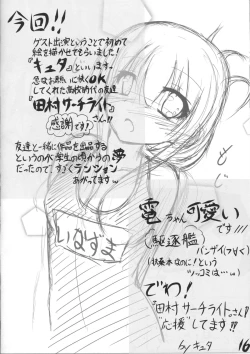 今回!!
ゲスト出演ということで初めて
絵を描かせてもらいました!
『キュタ』といいます。
急なお願いに快くOK
してくれた高校時代の友達
『田村サーチライト』さん!!
感謝です!
友達と一緒に作品を出品する
というのが学生の頃からの夢
だったので、すごくテンション
あがってます w
いなずま
電ちゃん可愛い
です!!!
(駆逐艦)
バンザイ
ツッコミは…w)
でわ!
『田村サーチライト』さん!
"応援"してます!!
by キュタ
16